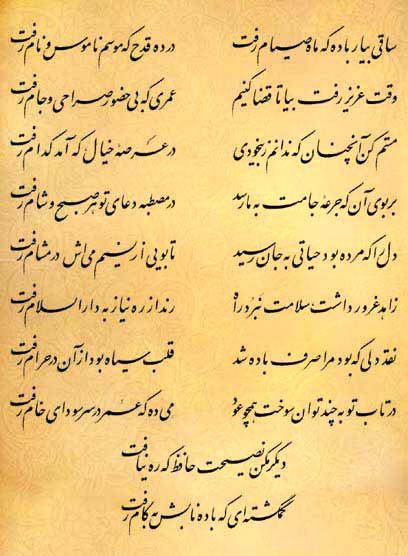 ساقی بیار باده که ماه صیام رفت در ده قدح که موسم ناموس و نام رفت
وقت عزیز رفت بیا تا قضا کنیم عمری که بی حضور صراحی و جام رفت
مستم کن آنچنان که ندانم ز بیخودی در عرصه خیال که آمد کدام رفت
بر بوی آن که جرعه جامت به ما رسد در مصطبه دعای تو هر صبح و شام رفت
دل را که مرده بود حیاتی به جان رسید تا بویی از نسیم می‌اش در مشام رفت
زاهد غرور داشت سلامت نبرد راه رند از ره نیاز به دارالسلام رفت
نقد دلی که بود مرا صرف باده شد قلب سیاه بود از آن در حرام رفت
در تاب توبه چند توان سوخت همچو عود می ده که عمر در سر سودای خام رفت
دیگر مکن نصیحت حافظ که ره نیافت
گمگشته‌ای که باده نابش به کام رفت